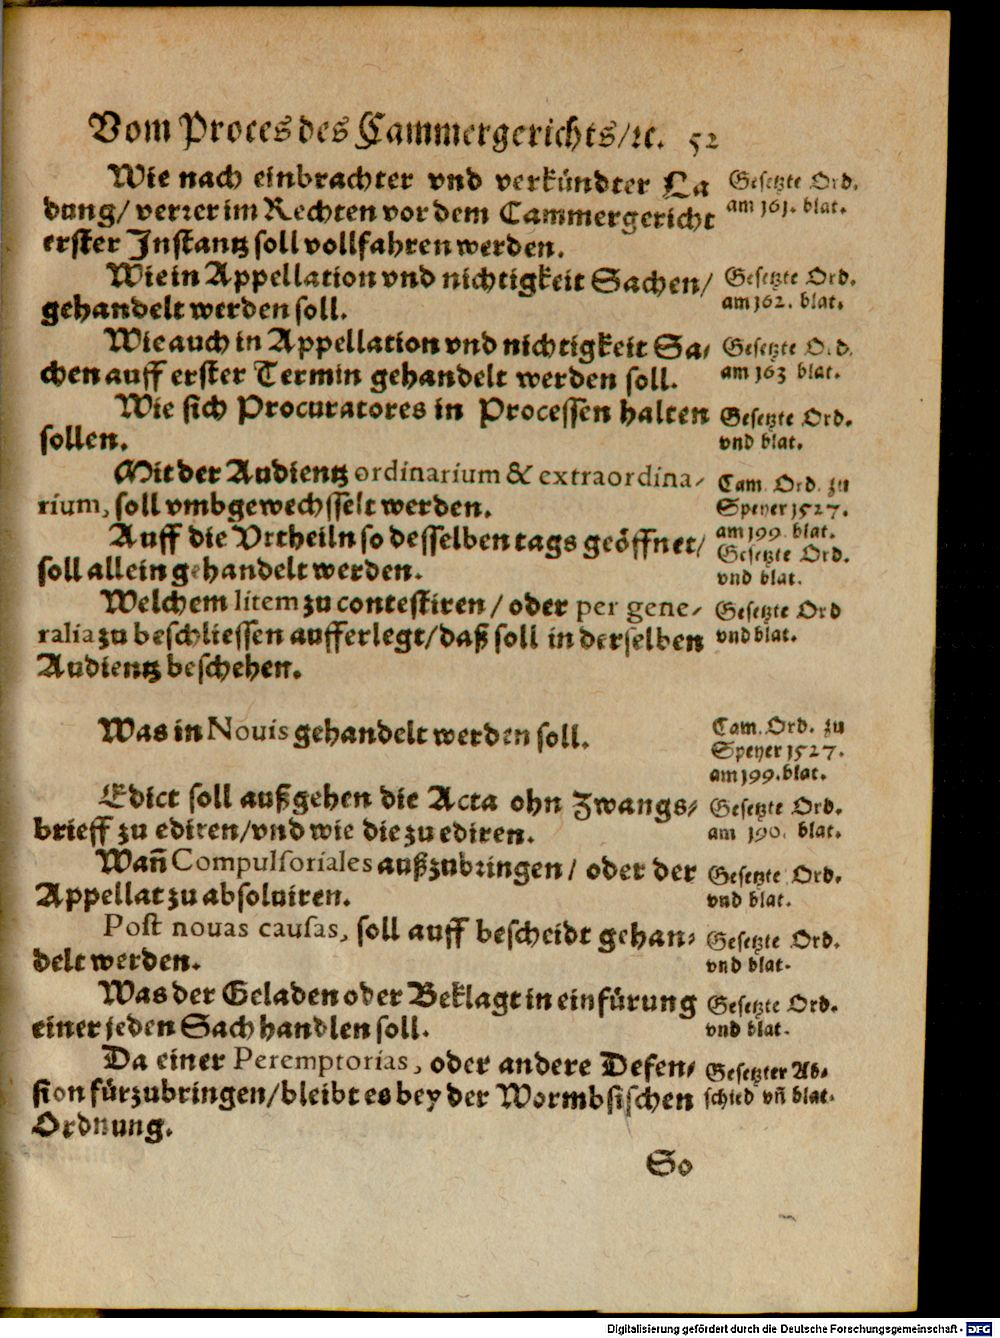 Vom Proces des Cammergerichts/ꝛc. 52
Wie nach einbrachter vnd verkündter La
dung/ verrer im Rechten vor dem Cammergericht
erster Instantz soll vollfahren werden.
Gesetzte Ord.
am 161. blat.
Wie in Appellation vnd nichtigkeit Sachen/
gehandelt werden soll.
Gesetzte Ord.
am 162. blat.
Wie auch in Appellation vnd nichtigkeit Sa⸗
chen auff erster Termin gehandelt werden soll.
Gesetzte Ord.
am 163 blat.
Wie sich Procuratores in Processen halten
sollen.
Gesetzte Ord.
vnd blat.
Mit der Audientz ordinarium & extraordina⸗
rium, soll vmbgewechsselt werden.
Cam. Ord. zu
Speyer 1527.
am 199. blat.
Auff die Vrtheiln so desselben tags geöffnet/
soll allein gehandelt werden.
Gesetzte Ord.
vnd blat.
Welchem litem zu contestiren / oder per gene⸗
ralia zu beschliessen aufferlegt/daß soll in derselben
Audientz beschehen.
Gesetzte Ord
vnd blat.
Was in Nouis gehandelt werden soll.
Cam. Ord. zu
Speyer 1527.
am 199. blat.
Edict soll außgehen die Acta ohn Zwangs⸗
brieff zu ediren/vnd wie die zu ediren.
Gesetzte Ord.
am 190. blat.
Wañ Compulsoriales außzubringen / oder der
Appellat zu absoluiren.
Gesetzte Ord.
vnd blat.
Post nouas causas, soll auff bescheidt gehan⸗
delt werden.
Gesetzte Ord.
vnd blat.
Was der Geladen oder Beklagt in einfürung
einer jeden Sach handlen soll.
Gesetzte Ord.
vnd blat.
Da einer Peremptorias, oder andere Defen⸗
sion fürzubringen/bleibt es bey der Wormbsischen
Ordnung.
Gesetzter Ab⸗
schied vñ blat.
So
Digitalisierung gefördert durch die Deutsche Forschungsgemeinschaft - DFG